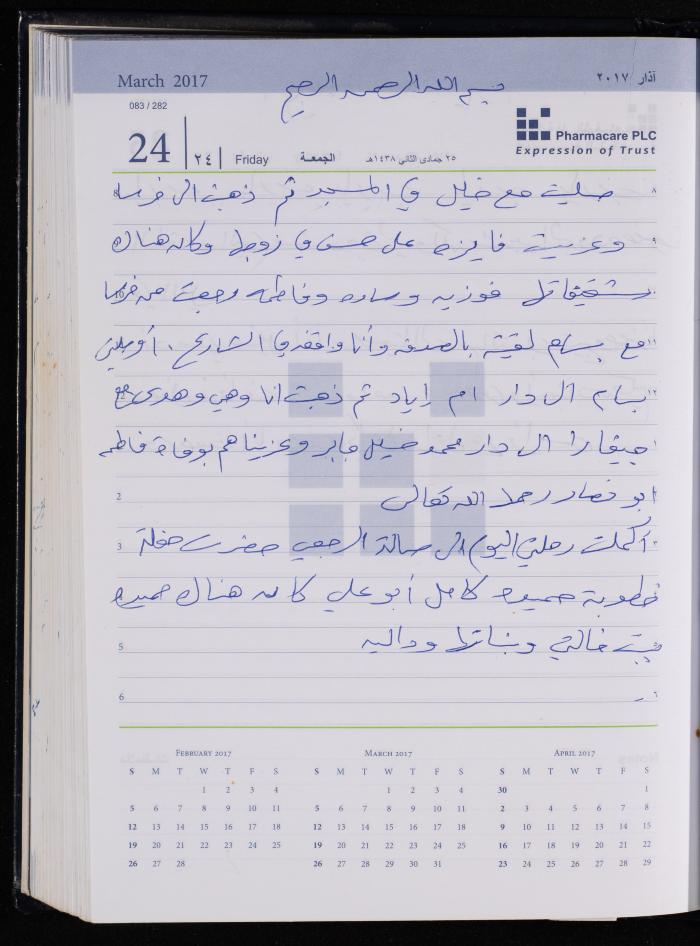 March 2017
آذار ٢٠١٧
بسم الله الرحمن الرحيم
083 / 282
24 | ٢٤ | Friday الجمعة ٢٥ جمادى الثاني ١٤٣٨هـ
Pharmacare PLC
Expression of Trust
صليت مع خليل في المسجد ثم ذهبت الى
وعزيت فايزه على في زوجها وكان هناك
فوزيه وساره وفاطمه رجعت من
مع بسام لقيته بالصدفه وأنا واقفه في الشارع . أوصلني
بسام الى دار ام إياد ثم ذهبت انا وهي وهدى مع
الى دار محمد خليل جابر وعزيناهم بوفاة فاطمه
2 ابو نصار رحمها الله تعالى
3 أكملت رحلتي اليوم الى صالة حضرت حفلة
خطوبة كامل أبو علي كان هناك
5 بنت خالي وبناتها وداليه
6
February 2017
March 2017
April 2017
S M T W T F S
S M T W T F S
S M T W T F S
1 2 3 4
1 2 3 4
30 1
5 6 7 8 9 10 11
5 6 7 8 9 10 11
2 3 4 5 6 7 8
12 13 14 15 16 17 18
12 13 14 15 16 17 18
9 10 11 12 13 14 15
19 20 21 22 23 24 25
19 20 21 22 23 24 25
16 17 18 19 20 21 22
26 27 28
26 27 28 29 30 31
23 24 25 26 27 28 29